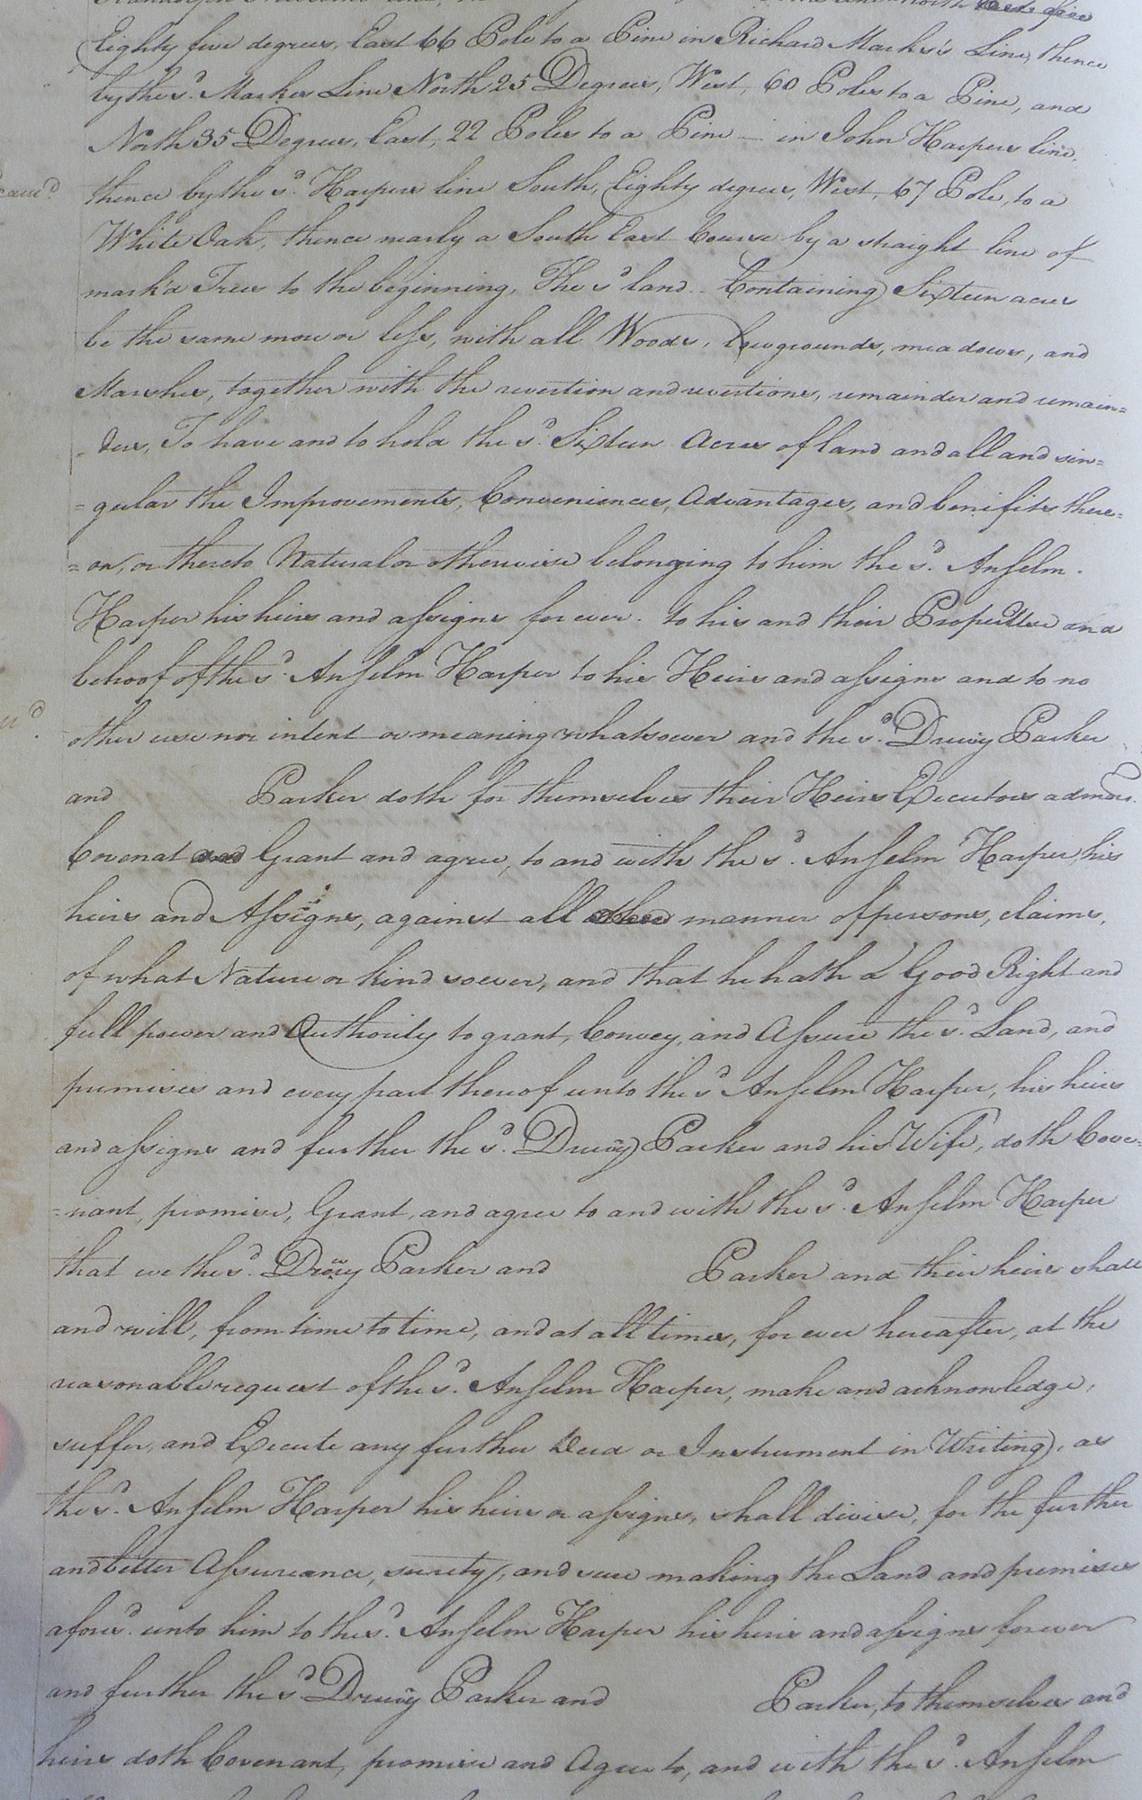 North
Eighty five degrees, East 66 Pole to a Pine in Richard Marks's Line, thence
by the sd. Markes Line North 25 Degrees, West, 60 Poles to a Pine, and
North 35 Degrees, East, 22 Poles to a Pine — in John Harpers line,
thence by the sd. Harpers line South, Eighty degrees, West, 67 Pole, to a
White Oak, thence nearly a South East Course by a straight line of
mark'd Trees to the beginning, The sd land Containing Sixteen acres
be the same more or less, with all Woods, Lowgrounds, meadows, and
Marshes, together with the revertion and revertions, remainder and remain=
=ders, To have and to hold the sd. Sixteen Acres of land and all and sin=
=gular the Improvements, Conveniences, Advantages, and benifits there=
=on, or thereto Natural or otherwise belonging to him the sd. Anselm
Harper his heirs and assigns for ever. to his and their Proper Use and
behoof of the sd. Anselm Harper to his Heirs and assigns and to no
other use nor intent or meaning whatsoever and the sd. Drury Parker
and Parker doth for themselves their Heirs Executors admrs.
Covenat and Grant and agree, to and with the sd. Anselm Harper, his
heirs and Assigns, against all manner of persons, claims,
of what Nature or kind soever, and that he hath a Good Right and
full power and Authority to grant, Convey, and Assure the sd. Land, and
premises and every part thereof unto the sd Anselm Harper, his heirs
and assigns and further the sd. Drury Parker and his Wife, doth Cove=
=nant, promise, Grant, and agree to and with the sd. Anselm Harper
that we the sd. Drury Parker and Parker and their heirs shall
and will, from time to time, and at all times, for ever hereafter, at the
reasonable request of the sd. Anselm Harper, make and acknowledge,
suffer, and Execute any further Deed or Instrument in Writing, as
the sd. Anselm Harper his heirs or assigns, shall divise, for the further
and better Assureance, surety, and sure making the Land and premises
aforesd. unto him to the sd. Anselm Harper his heirs and assigns forever
and further the sd Drury Parker and Parker, to themselves and
heirs doth Covenant, promise and Agree to, and with the sd. Anselm